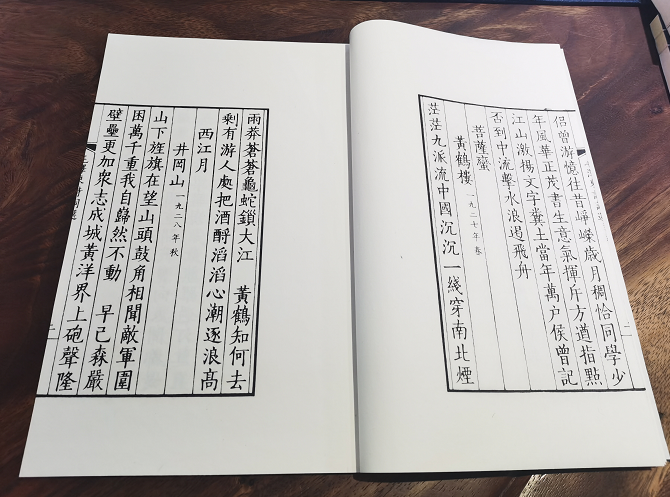 侶曾游憶往昔崢嶸歲月稠恰同學少
年風華正茂書生意氣揮斥方遒指點
江山激揚文字糞土當年萬戶侯曾記
否到中流擊水浪遏飛舟
菩薩蠻
黃鶴樓 一九二七年春
茫茫九派流中國沉沉一綫穿南北煙
雨莽蒼蒼龜蛇鎖大江 黃鶴知何去
剩有游人處把酒酹滔滔心潮逐浪高
西江月
井岡山 一九二八年秋
山下旌旗在望山頭鼓角相聞敵軍圍
困萬千重我自巋然不動 早已森嚴
壁壘更加衆志成城黃洋界上砲聲隆